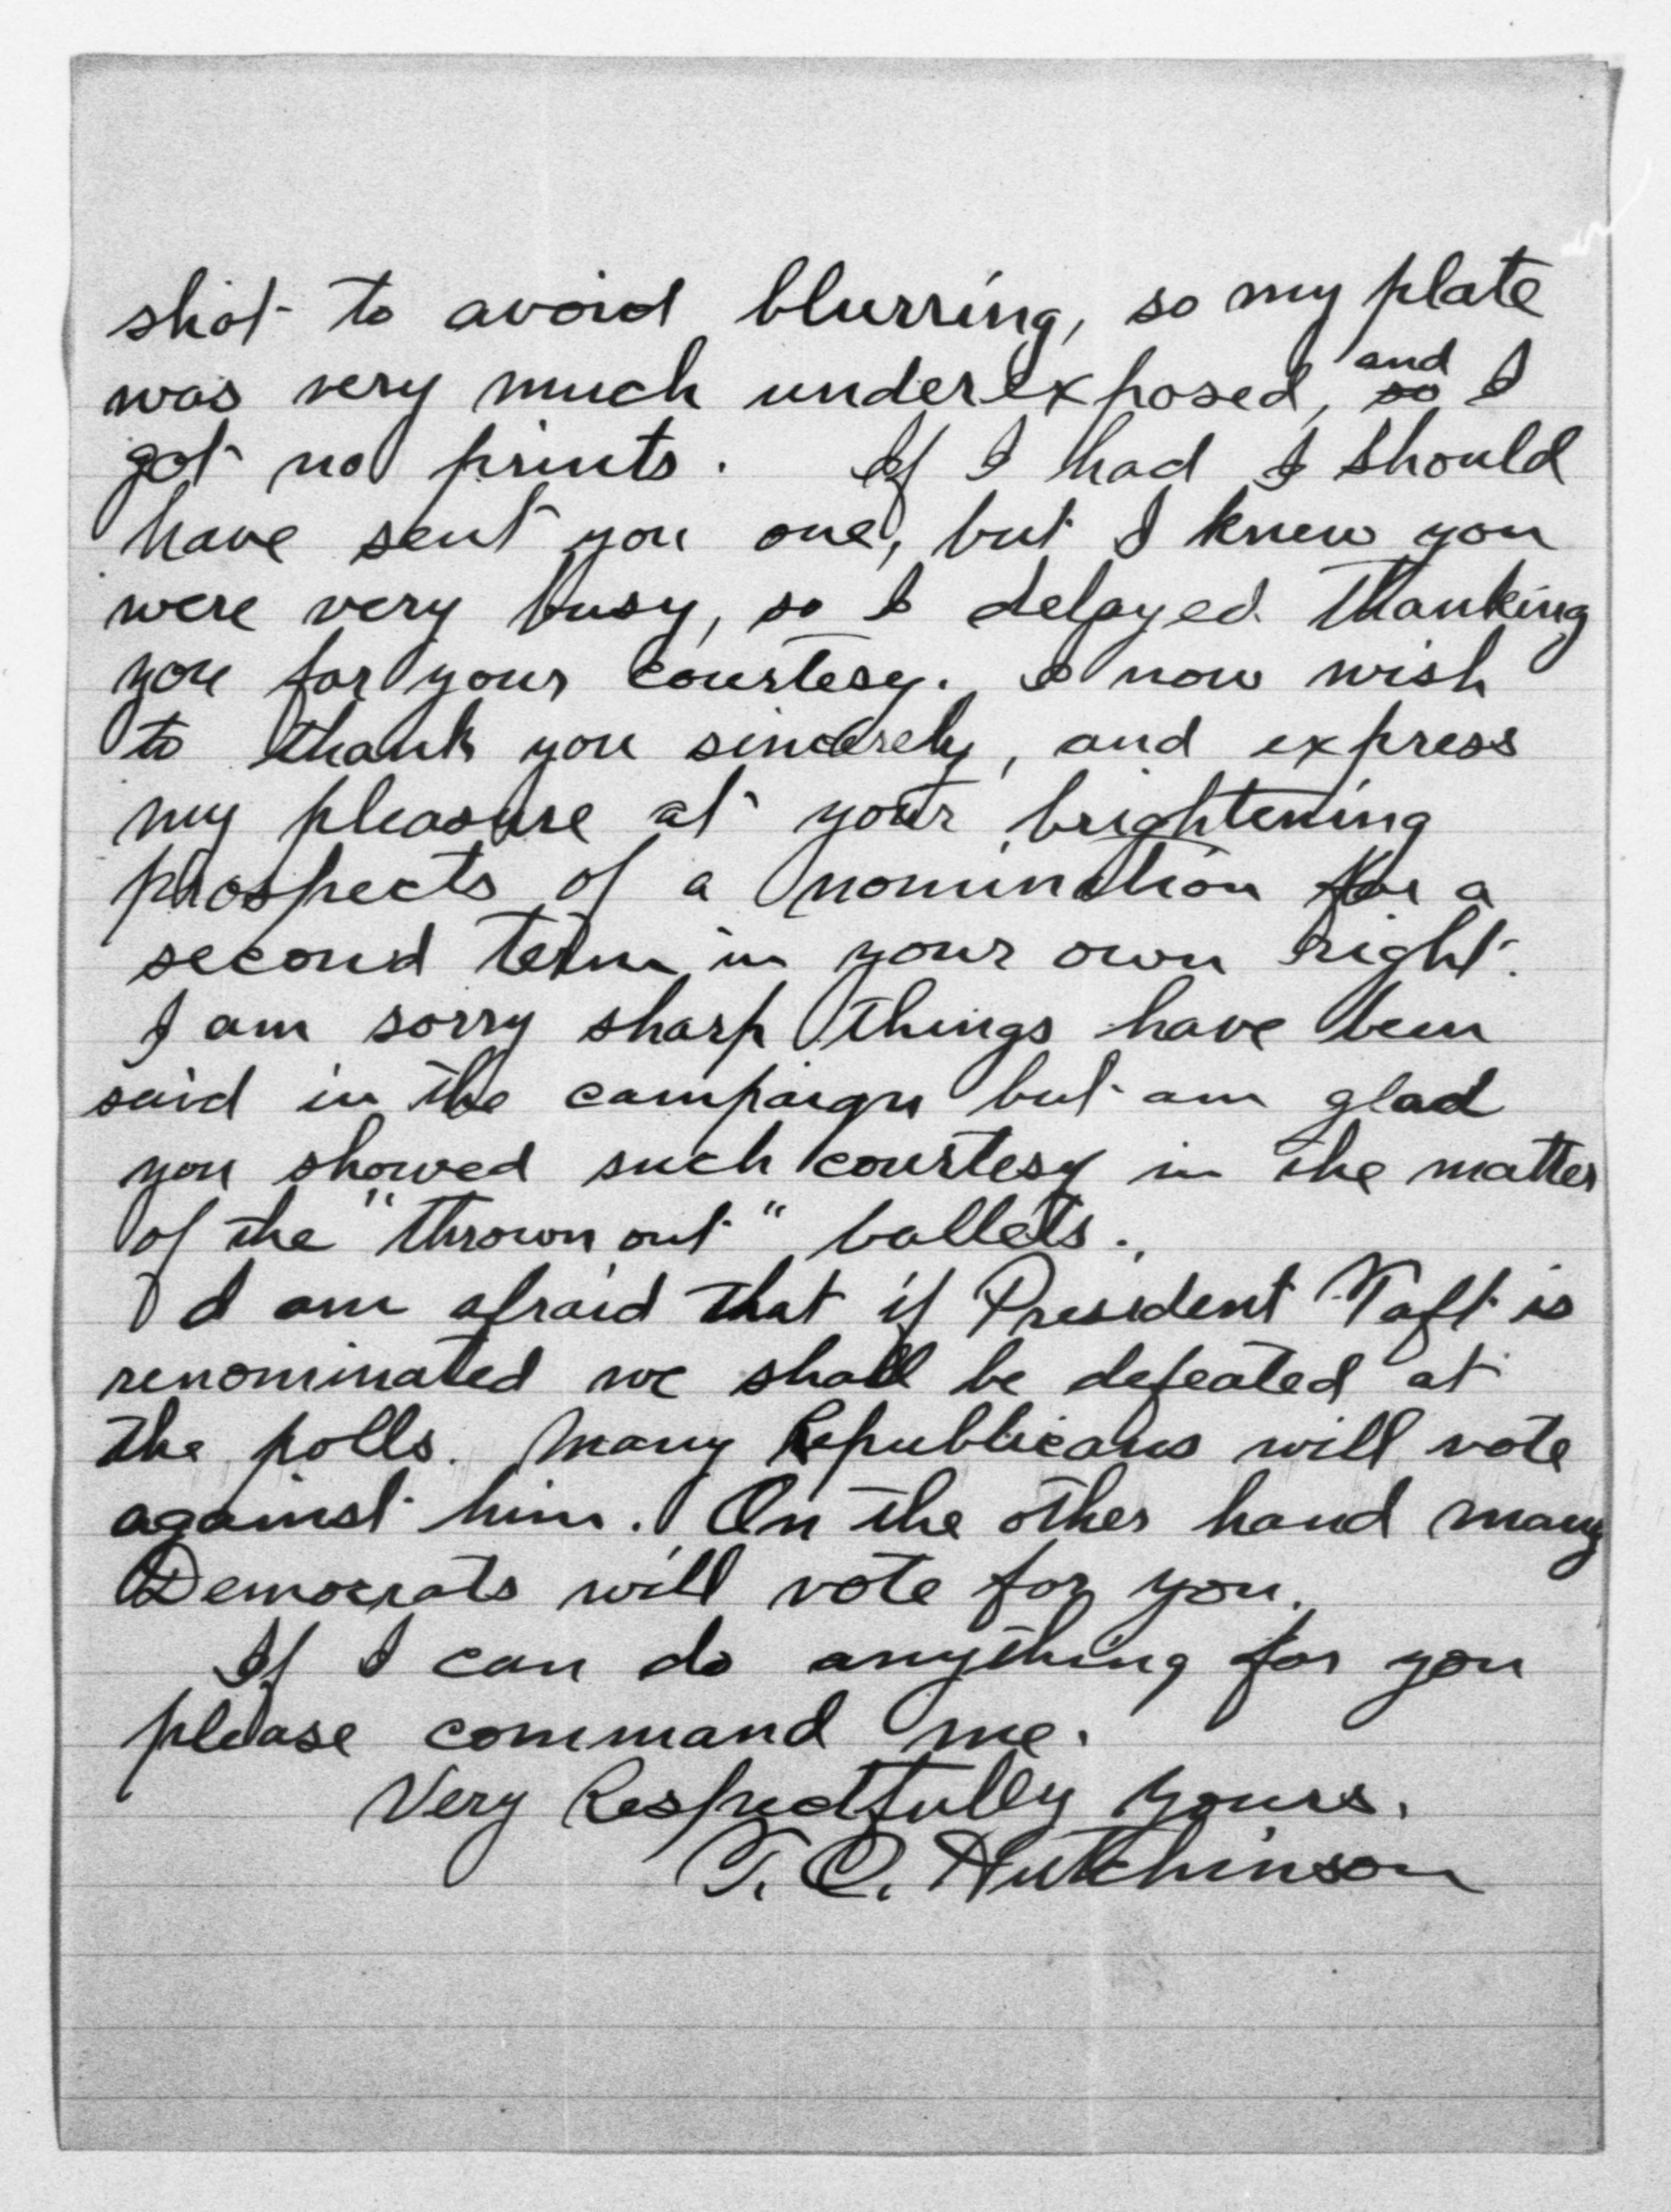 shot to avoid blurring, so my plate
was very much underexposed, and so I
got no prints. If I had I should
have sent you one, but I knew you
were very busy, so I delayed thanking
you for your courtesy. I now wish
to thank you sincerely, and express
my pleasure at your brightening
prospects of a nomination for a
second term in your own right.
I am sorry sharp things have been
said in the campaign but am glad
you showed such courtesy in the matter
of the "thrown out" ballets.
I am afraid that if President Taft is
renominated we shall be defeated at
the polls. Many Republicans will vote
against him. On the other hand many
Democrats will vote for you.
If I can do anything for you
please command me.
Very Respectfully Yours.
T. C. Hutchinson